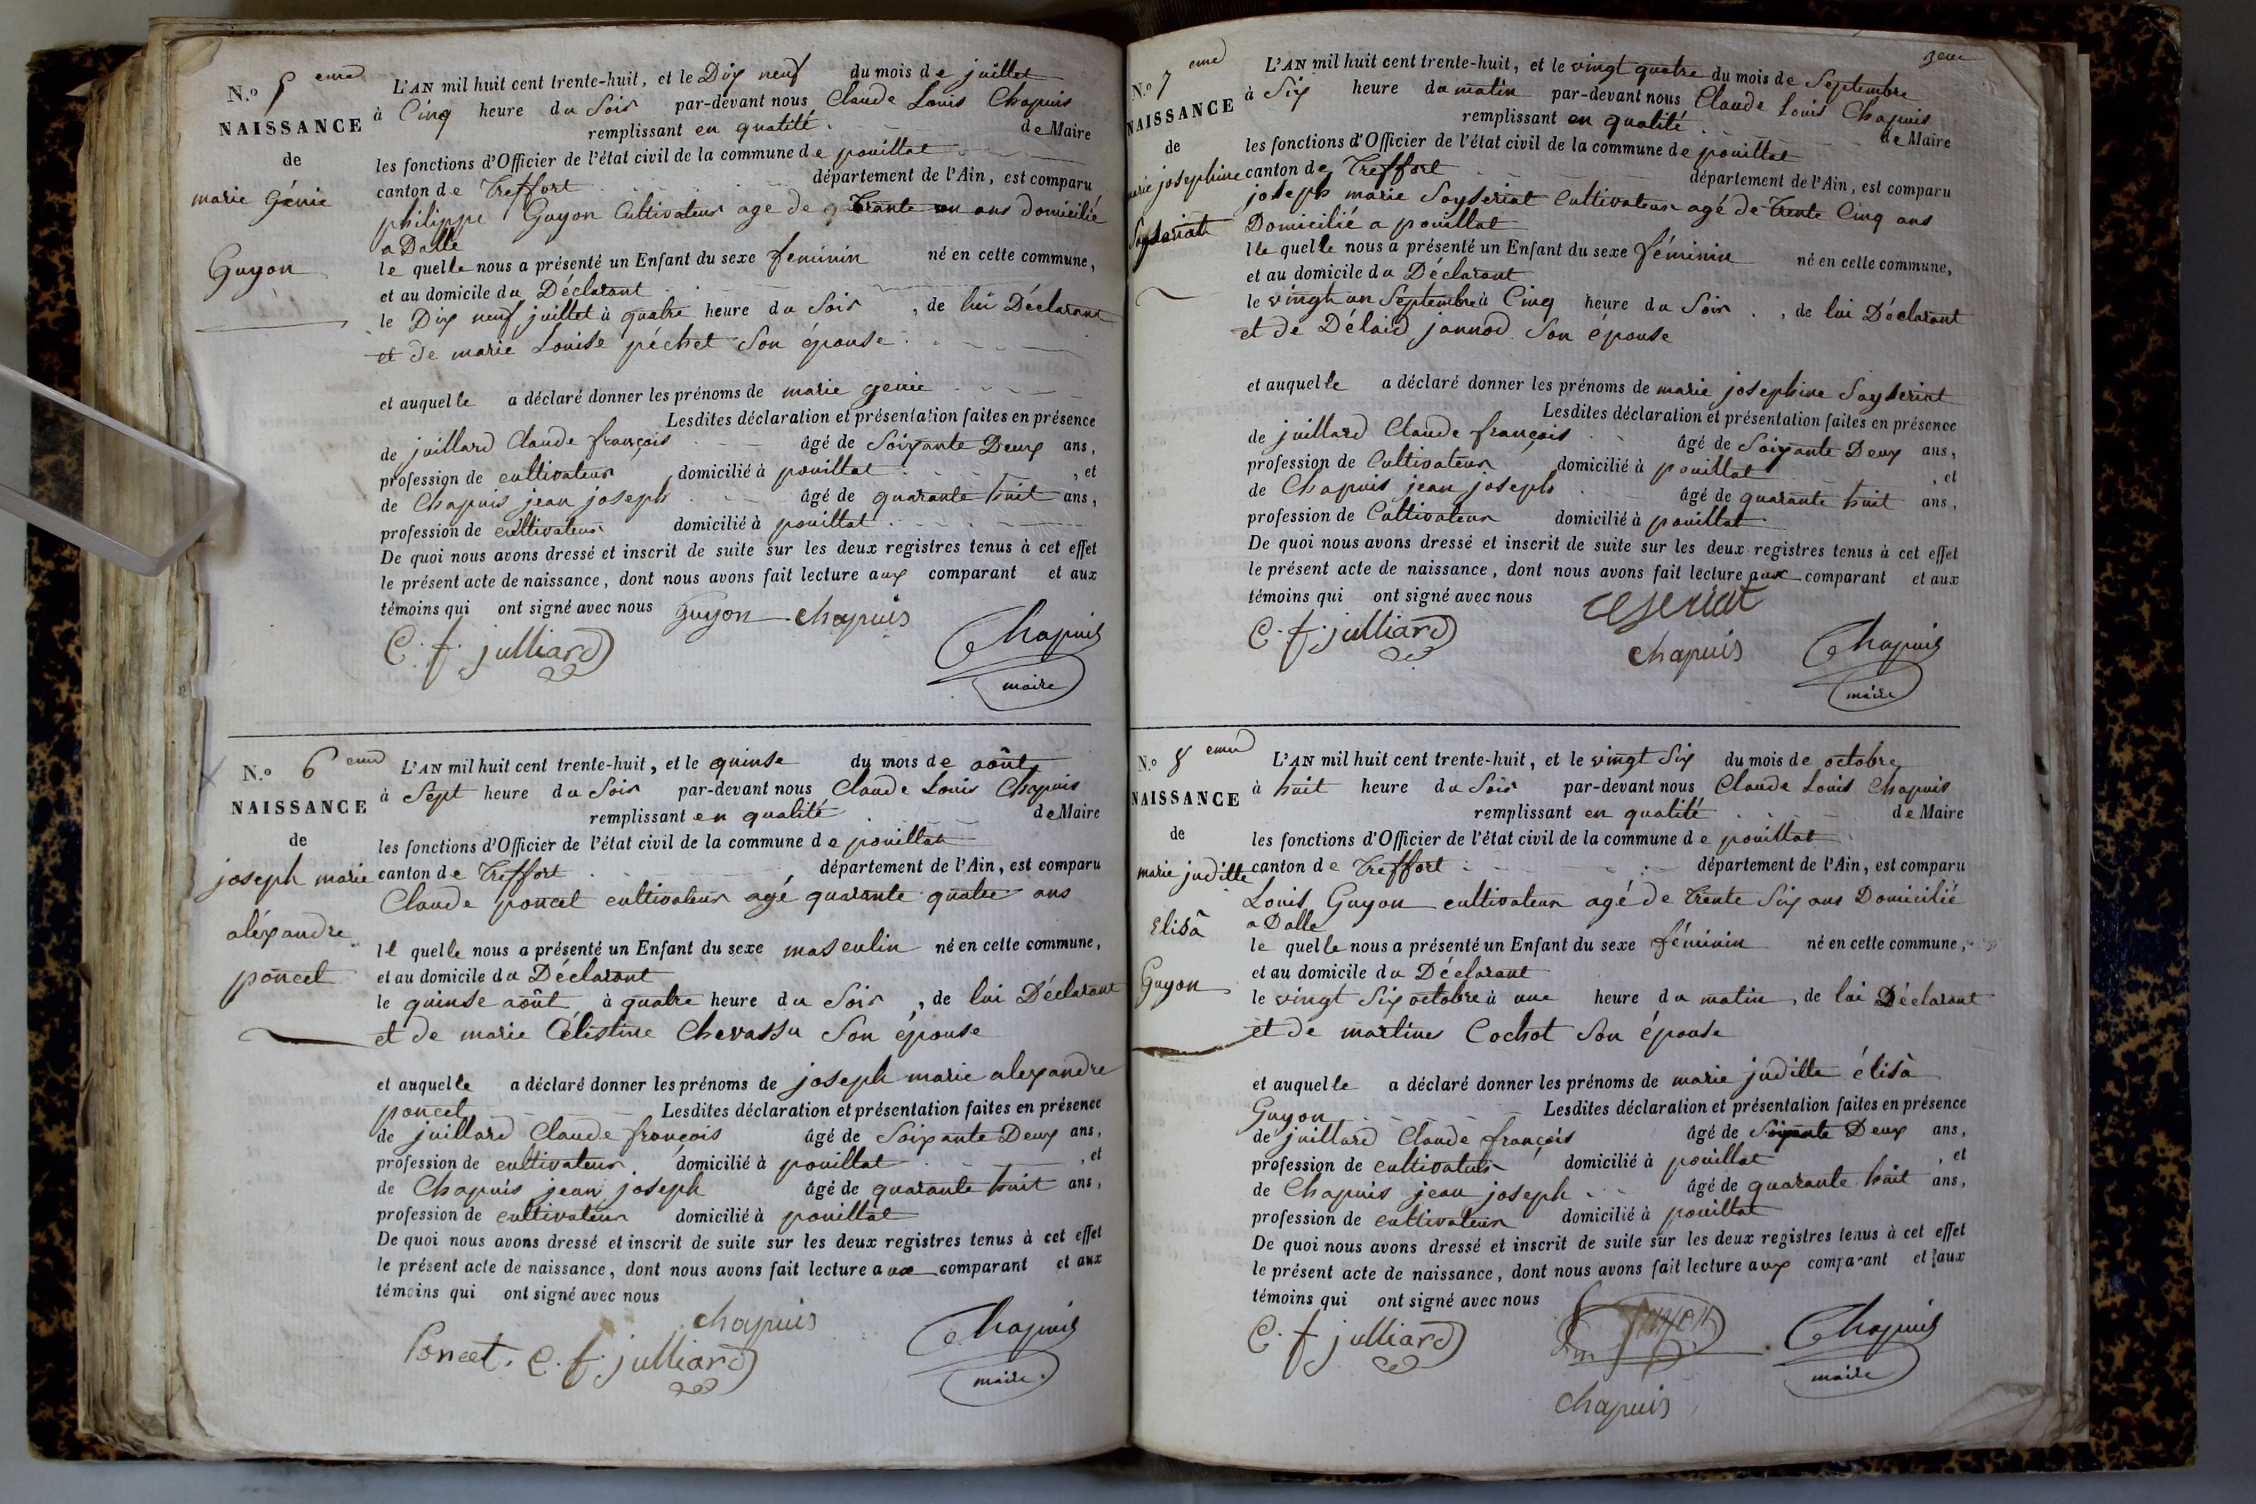 N.º 5 eme
NAISSANCE
de
marie Génie
Guyon
L'AN mil huit cent trente-huit, et le Dix neuf du mois de juillet
à Cinq heure du Soir par-devant nous Claude Louis Chapuis
remplissant en qualité de Maire
les fonctions d'Officier de l'état civil de la commune de pouillat
canton de Treffort département de l'Ain, est comparu
philippe Guyon Cultivateur age de quarante un ans Domicilié
a Dalle
le quelle nous a présenté un Enfant du sexe feminin né en cette commune,
et au domicile du Déclarant
le Dix neuf juillet à quatre heure du Soir, de lui Déclarant
et de marie Louise péchet Son épouse
et auquelle a déclaré donner les prénoms de marie genie
Lesdites déclaration et présentation faites en présence
de juillard Claude françois âgé de Soixante Deux ans,
profession de cultivateur domicilié à pouillat, et
de Chapuis jean joseph âgé de quarante huit ans,
profession de cultivateur domicilié à pouillat
De quoi nous avons dressé et inscrit de suite sur les deux registres tenus à cet effet
le présent acte de naissance, dont nous avons fait lecture aux comparant et aux
témoins qui ont signé avec nous Guyon chapuis
C. f. julliard Chapuis
maire
N.º 6 eme
NAISSANCE
de
joseph marie
aléxandre
poncet
L'AN mil huit cent trente-huit, et le quinse du mois de août
à Sept heure du Soir par-devant nous Claude Louis Chapuis
remplissant en qualité de Maire
les fonctions d'Officier de l'état civil de la commune de pouillat
canton de Treffort département de l'Ain, est comparu
Claude poncet cultivateur agé quarante quatre ans
le quelle nous a présenté un Enfant du sexe masculin né en cette commune,
et au domicile du Déclarant
le quinse août à quatre heure du Soir, de lui Déclarant
et de marie Célestine Chevassu Son épouse
et auquelle a déclaré donner les prénoms de joseph marie alexandre
poncet Lesdites déclaration et présentation faites en présence
de juillard Claude françois âgé de Soixante Deux ans,
profession de cultivateur domicilié à pouillat, et
de Chapuis jean joseph âgé de quarante huit ans,
profession de cultivateur domicilié à pouillat
De quoi nous avons dressé et inscrit de suite sur les deux registres tenus à cet effet
le présent acte de naissance, dont nous avons fait lecture aux comparant et aux
témoins qui ont signé avec nous
chapuis Chapuis
Poncet. C. f. julliard
maire
3eme
N.º 7 eme
NAISSANCE
de
marie josephine
Soyseriat
L'AN mil huit cent trente-huit, et le vingt quatre du mois de Septembre
à Six heure du matin par-devant nous Claude Louis Chapuis
remplissant en qualité de Maire
les fonctions d'Officier de l'état civil de la commune de pouillat
canton de Treffort département de l'Ain, est comparu
joseph marie Soyseriat Cultivateur agé de trente Cinq ans
Domicilié a pouillat
le quelle nous a présenté un Enfant du sexe féminin né en cette commune,
et au domicile du Déclarant
le vingt un Septembre à Cinq heure du Soir, de lui Déclarant
et de Délaid jannod Son épouse
et auquelle a déclaré donner les prénoms de marie josephine Soyseriat
Lesdites déclaration et présentation faites en présence
de juillard Claude françois âgé de Soixante Deux ans,
profession de Cultivateur domicilié à pouillat, et
de Chapuis jean joseph âgé de quarante huit ans,
profession de Cultivateur domicilié à pouillat
De quoi nous avons dressé et inscrit de suite sur les deux registres tenus à cet effet
le présent acte de naissance, dont nous avons fait lecture aux comparant et aux
témoins qui ont signé avec nous
C. f. julliard chapuis Chapuis
maire
N.º 8 eme
NAISSANCE
de
marie juditte
Elisà
Guyon
L'AN mil huit cent trente-huit, et le vingt Six du mois de octobre
à huit heure du Soir par-devant nous Claude Louis Chapuis
remplissant en qualité de Maire
les fonctions d'Officier de l'état civil de la commune de pouillat
canton de Treffort département de l'Ain, est comparu
Louis Guyon cultivateur agé de trente Six ans Domicilié
a Dalle
le quelle nous a présenté un Enfant du sexe féminin né en cette commune,
et au domicile du Déclarant
le vingt Six octobre à une heure du matin, de lui Déclarant
et de martines Cochot Son épouse
et auquelle a déclaré donner les prénoms de marie juditte élisà
Guyon Lesdites déclaration et présentation faites en présence
de juillard Claude françois âgé de Soixante Deux ans,
profession de cultivateur domicilié à pouillat, et
de Chapuis jean joseph âgé de quarante huit ans,
profession de cultivateur domicilié à pouillat
De quoi nous avons dressé et inscrit de suite sur les deux registres tenus à cet effet
le présent acte de naissance, dont nous avons fait lecture aux comparant et aux
témoins qui ont signé avec nous
C. f. julliard Guyon Chapuis
maire
chapuis